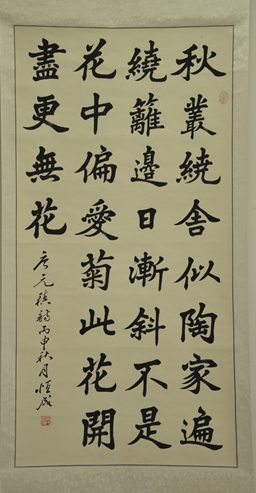 秋叢繞舍似陶家遍
繞籬邊日漸斜不是
花中偏愛菊此花開
盡更無花
唐元稹詩丙申秋月恒成